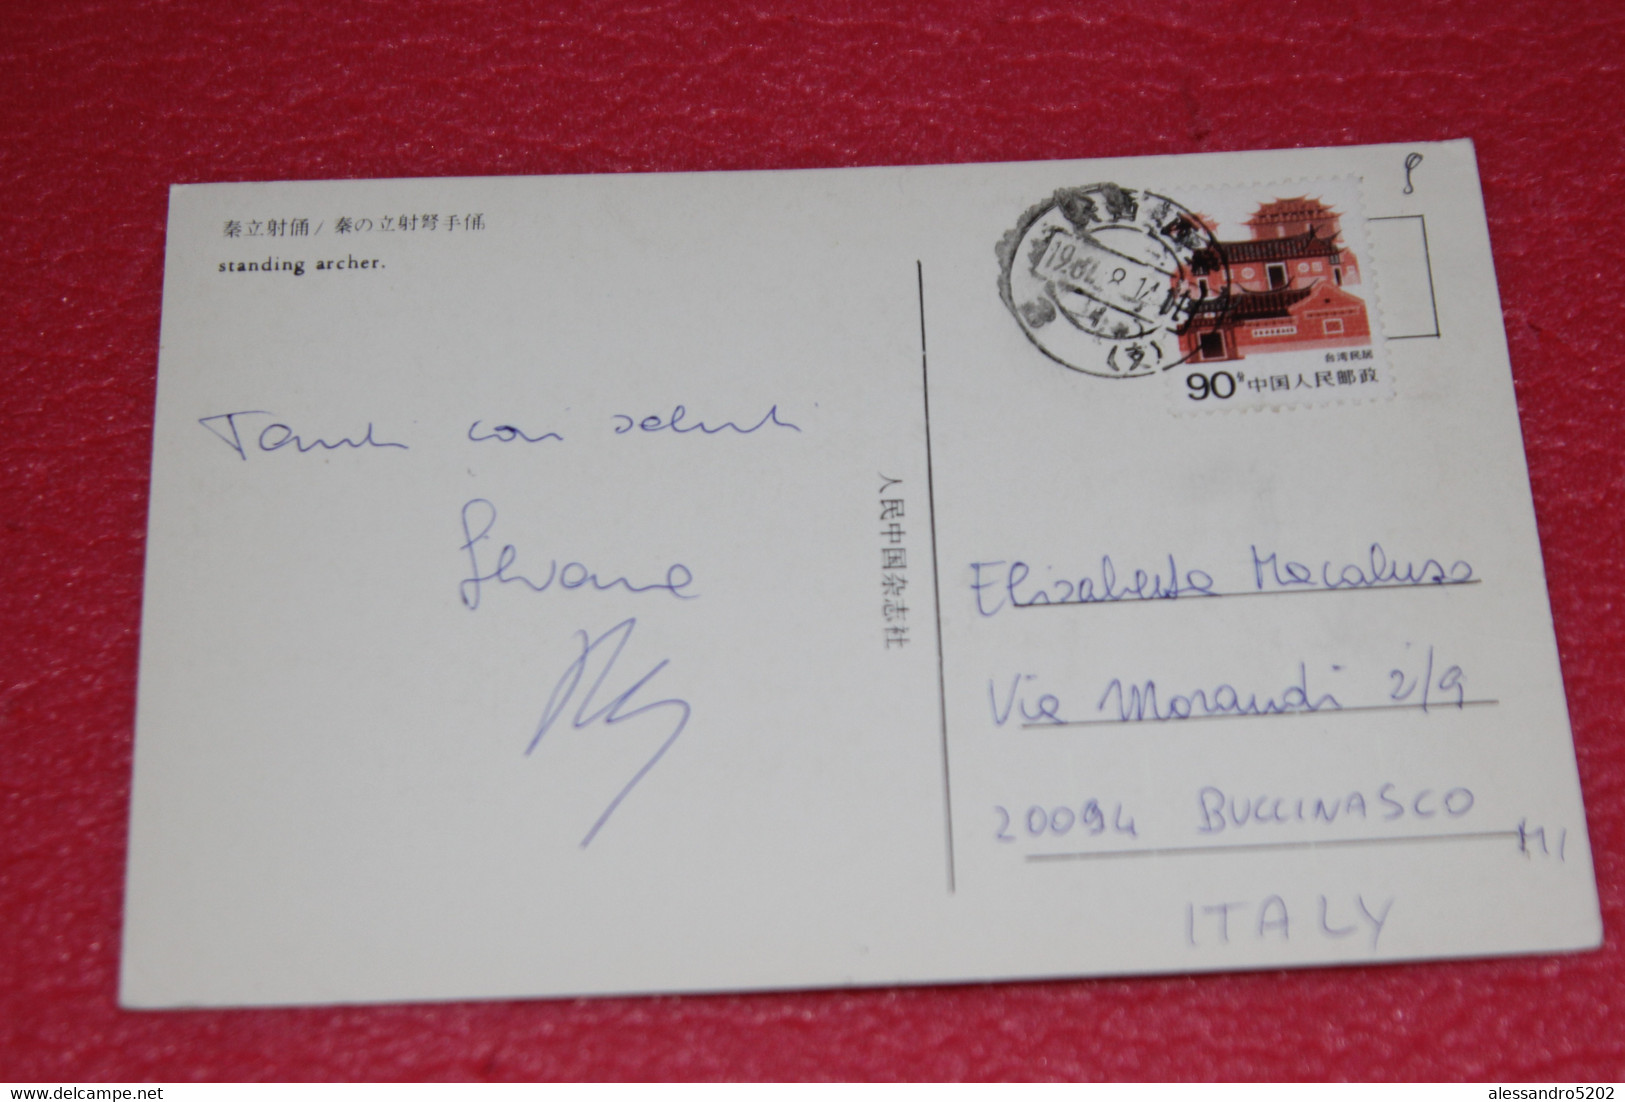 秦立射俑/秦の立射弩手俑
standing archer.
Tanti cari saluti
Silvana
人民中国杂志社
陕西
(支)
台湾民居
90分中国人民邮政
Elisabetta Macaluso
Via Morandi 2/9
20094 BUCCINASCO
MI
ITALY
alessandro5202